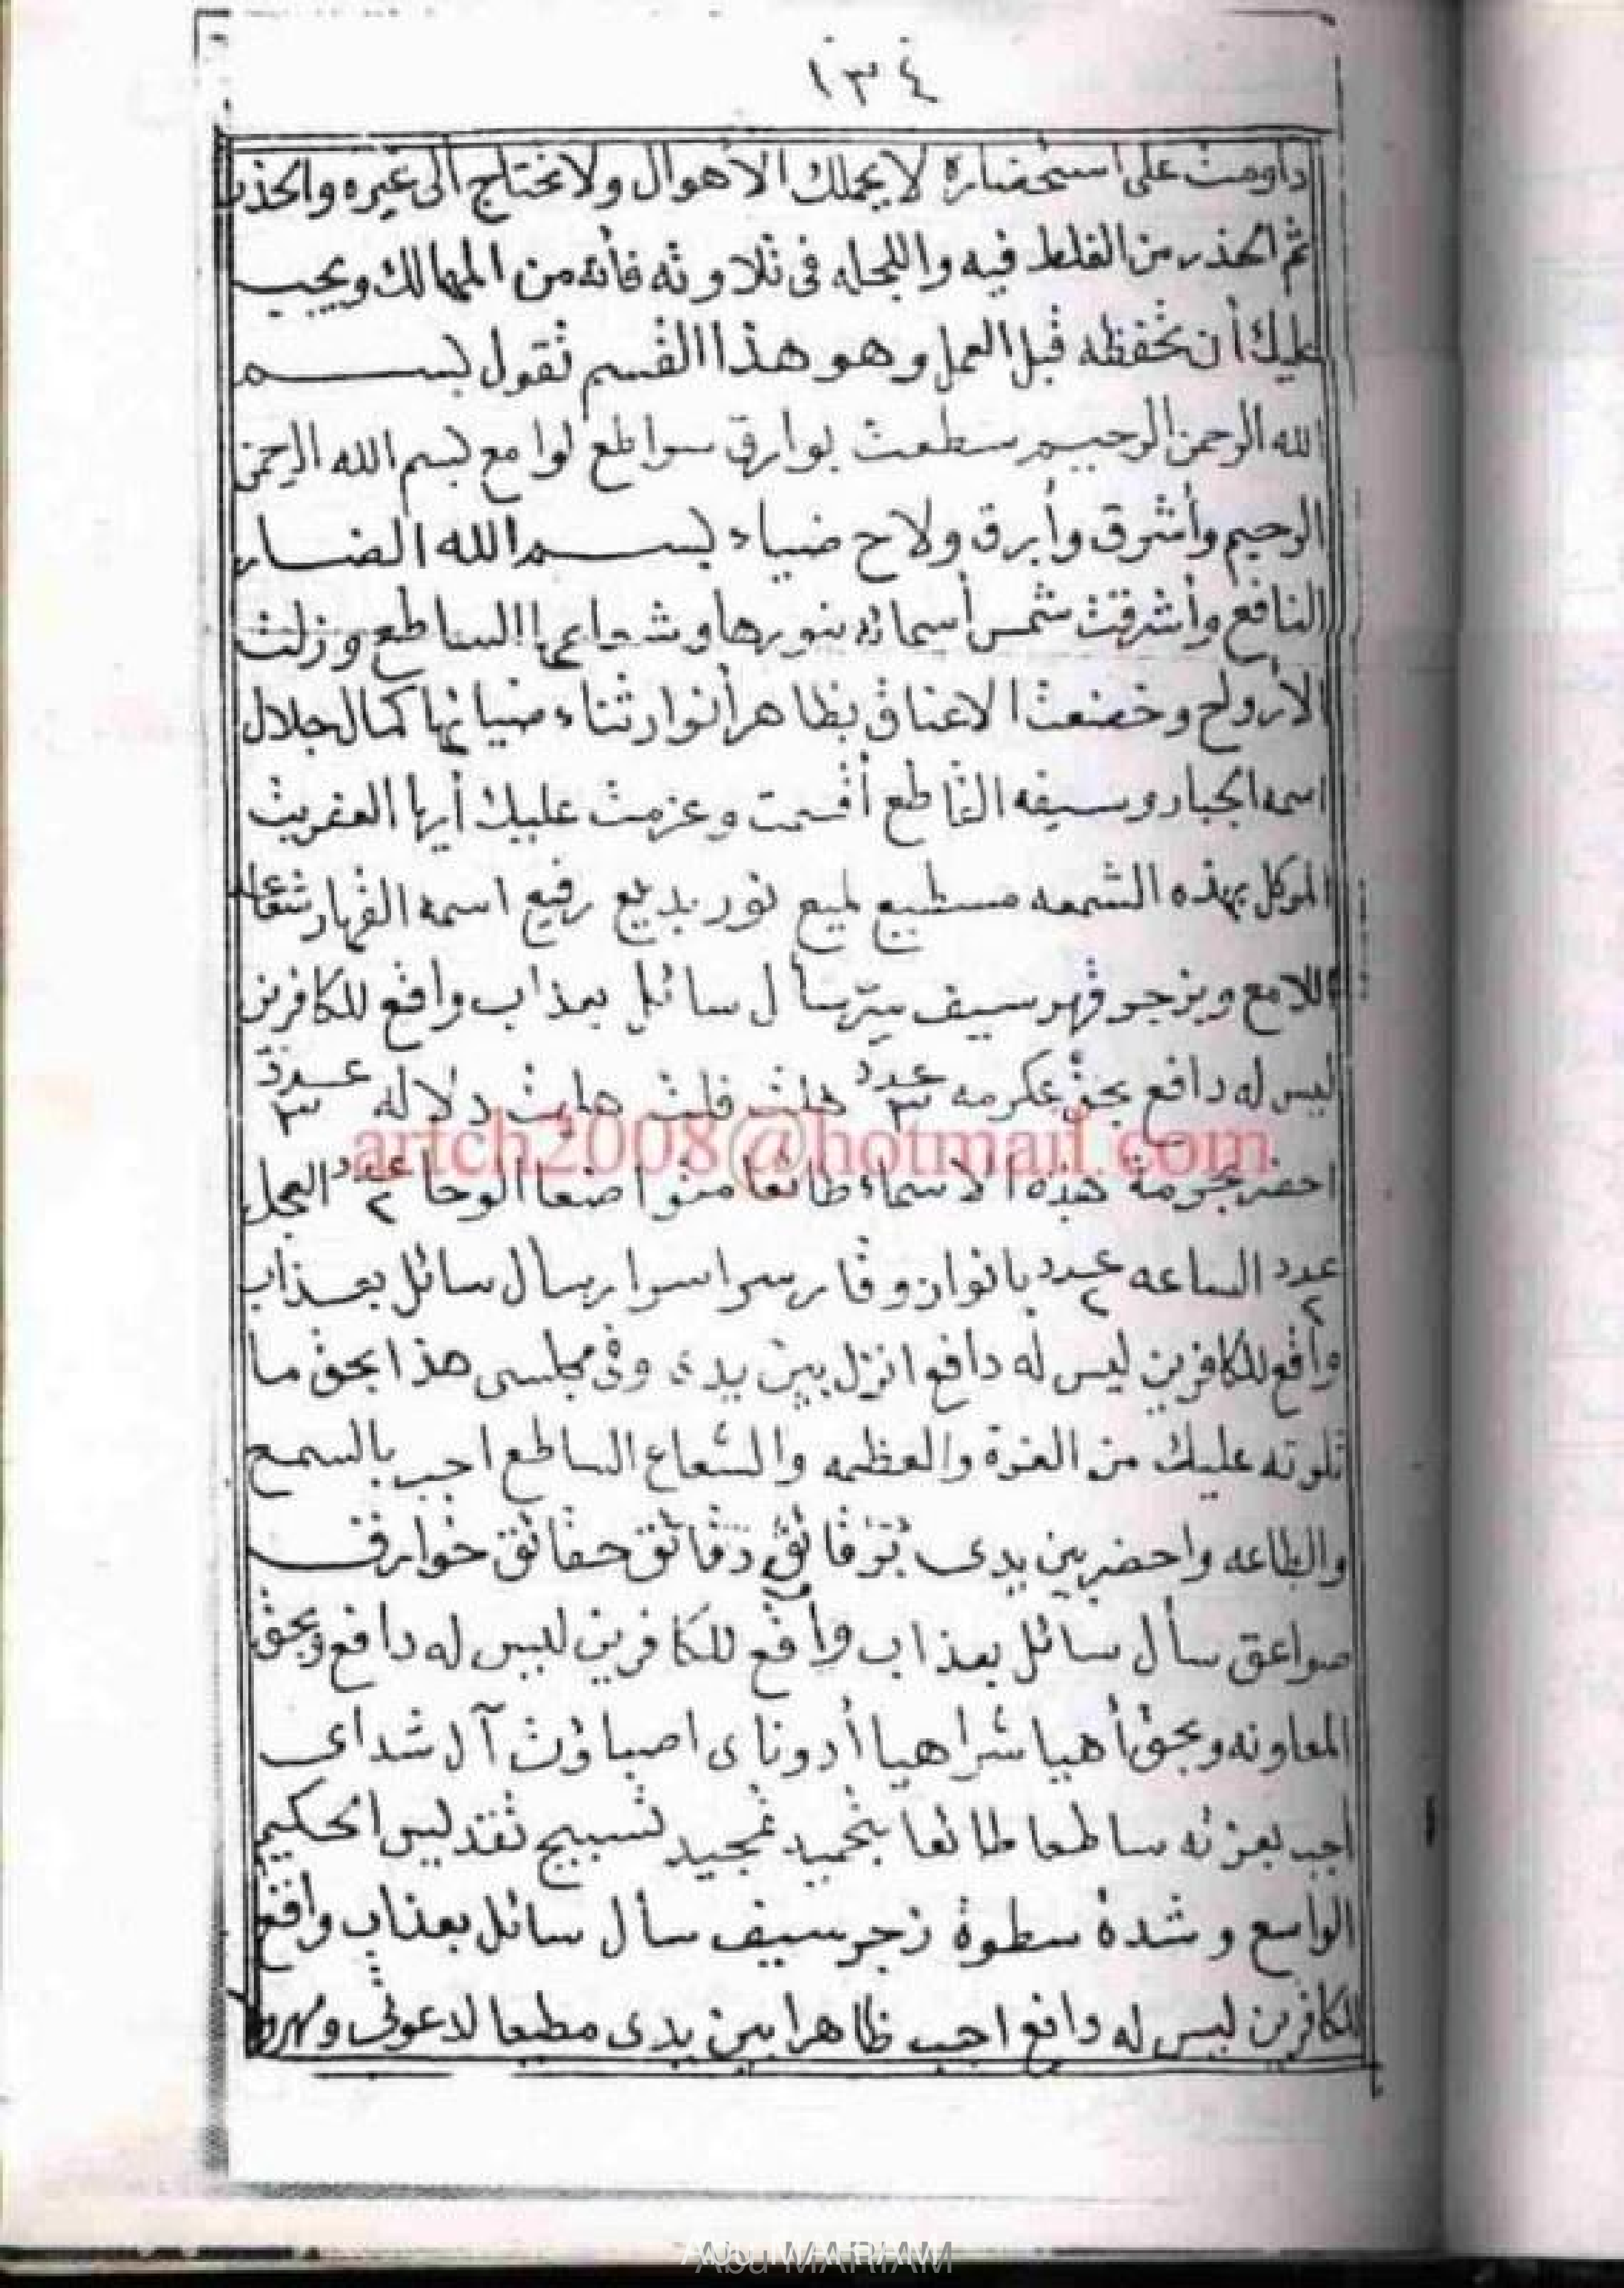 ١٣٤
داومت على استحضاره لا يحملك الأهوال ولا تحتاج الى غيره والحذر
ثم الحذر من الغلط فيه واللجله فى تلاوته فأنه من المهالك ويجب
عليك أن تحفظه قبل العمل وهو هذا القسم تقول بسم
الله الرحمن الرحيم سطعت بوارق سواطع لوامع بسم الله الرحمن
الرحيم وأشرق وأبرق ولاح ضياء بسم الله الضار
النافع وأشرقت شمس أسمائه بنورها وشعاعها الساطع وزلت
الارواح وخضعت الاعناق بظاهر أنوار ثناء ضيائها كمال جلال
اسمه الجبار وسيفه القاطع أقسمت وعزمت عليك أيها العفريت
الموكل بهذه الشمعه مسطيع لميع نور بديع رفيع اسمه القهار شعاع
اللامع وبزجر وقهر سيف سأل سائل بعذاب واقع للكافرين
ليس له دافع بحق عكرمه عدد ٣ هلت فلت هايت دلاله عدد ٣
احضر بحرمة هذه الاسماء طائعا متواضعا الوحا عدد ٢ العجل
عدد ٢ الساعه عدد ٢ بانوار وقار سر اسرار سأل سائل بعذاب
واقع للكافرين ليس له دافع انزل بين يدى وفى مجلسى هذا بحق ما
تلوته عليك من العزة والعظمه والشعاع الساطع اجب بالسمع
والطاعه واحضر بين يدى دقائق حقائق خوارق
صواعق سأل سائل بعذاب واقع للكافرين ليس له دافع وبحق
المعاونه وبحق أهيا شراهيا أدوناى اصباؤت آل شداى
اجب بعزته ساطعا طائعا بتحميد تمجيد تسبيح تقديس الحكيم
الواسع وشدة سطوة زجر سيف سأل سائل بعذاب واقع
للكافرين ليس له دافع اجب ظاهرا بين يدى مطيعا لدعوتى
artch2008@hotmail.com
Abu MARIAM